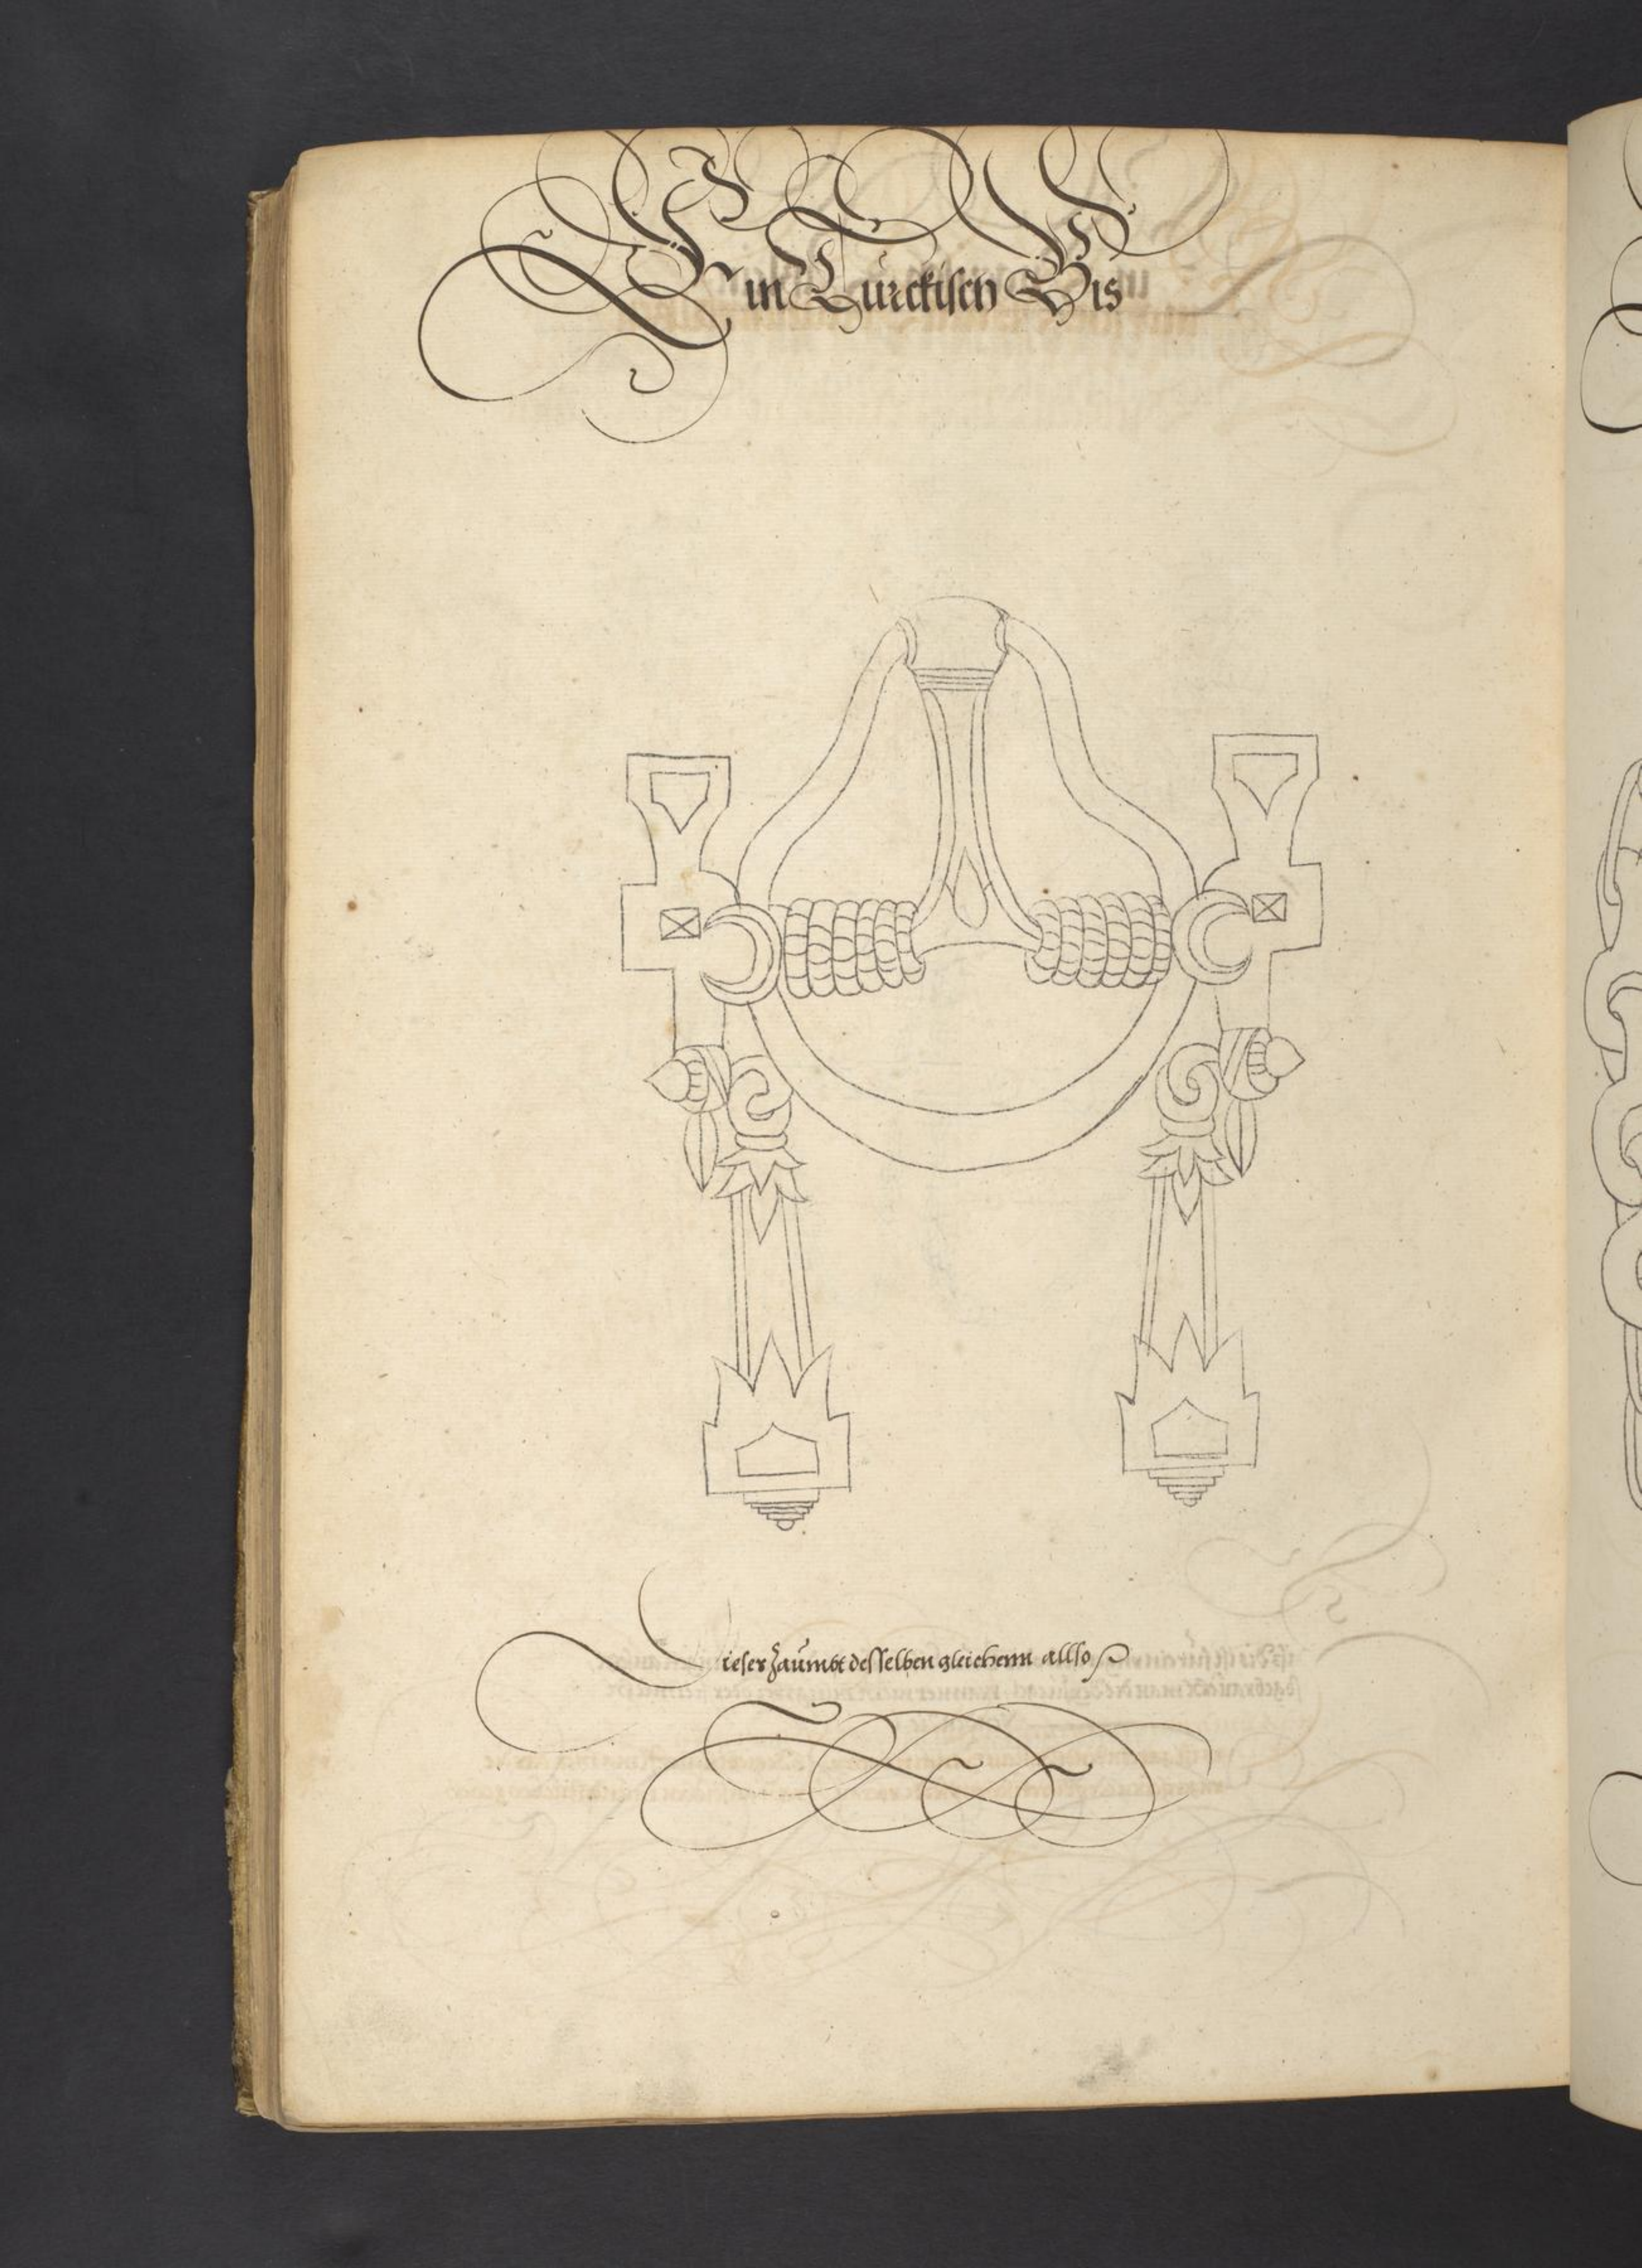 Ein Türckisch Bis
Dieser zäumbt desselben gleichenn allso